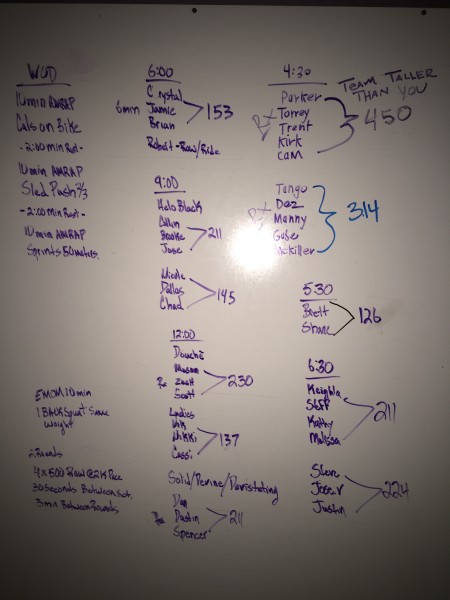 WOD
10 min AMRAP
Cals on Bike
- 2:00 min Rest -
10 min AMRAP
Sled Push
- 2:00 min Rest -
10 min AMRAP
Sprints 50 meters.
EMOM 10 min
1 Back Squat Same
Weight
2 Rounds
4 x 500 Row @ 2K Pace
30 seconds Between Set.
3 min Between Rounds
6:00
6min
Crystal
Jamie
Brian
153
Robert - Row/Ride
9:00
Halo Black
Collin
Brooke
Jose
211
Nicole
Dallas
Chad
145
12:00
Douche
Mason
Rx Zach
Scott
230
Ladies
Vik
Nikki
Cassi
137
Solid/Devine/Devistating
Dan
Dustin
Spencer
211
4:30
Team Taller
Than You
Parker
Torrey
Trent
Kirk
Cam
Rx
450
Tango
Daz
Manny
Gabe
Rx
314
5:30
Brett
Shane
126
6:30
Keighla
Steff
Kathy
Melissa
211
Steve
Jose.r
Justin
224